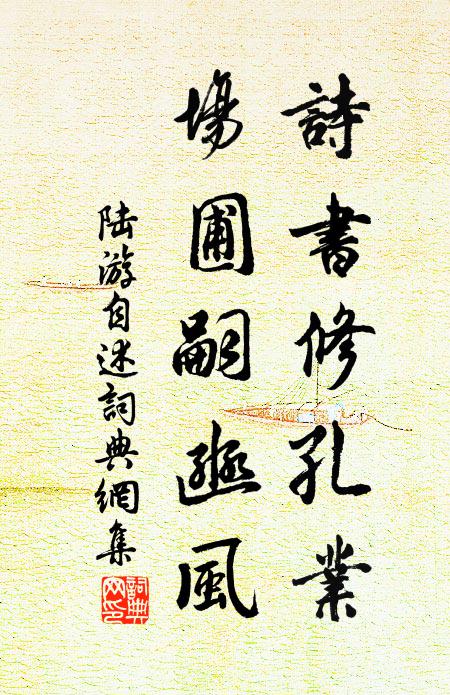 詩書修孔業
場圃嗣豳風
陸游自述詞典網集
詞典
网印